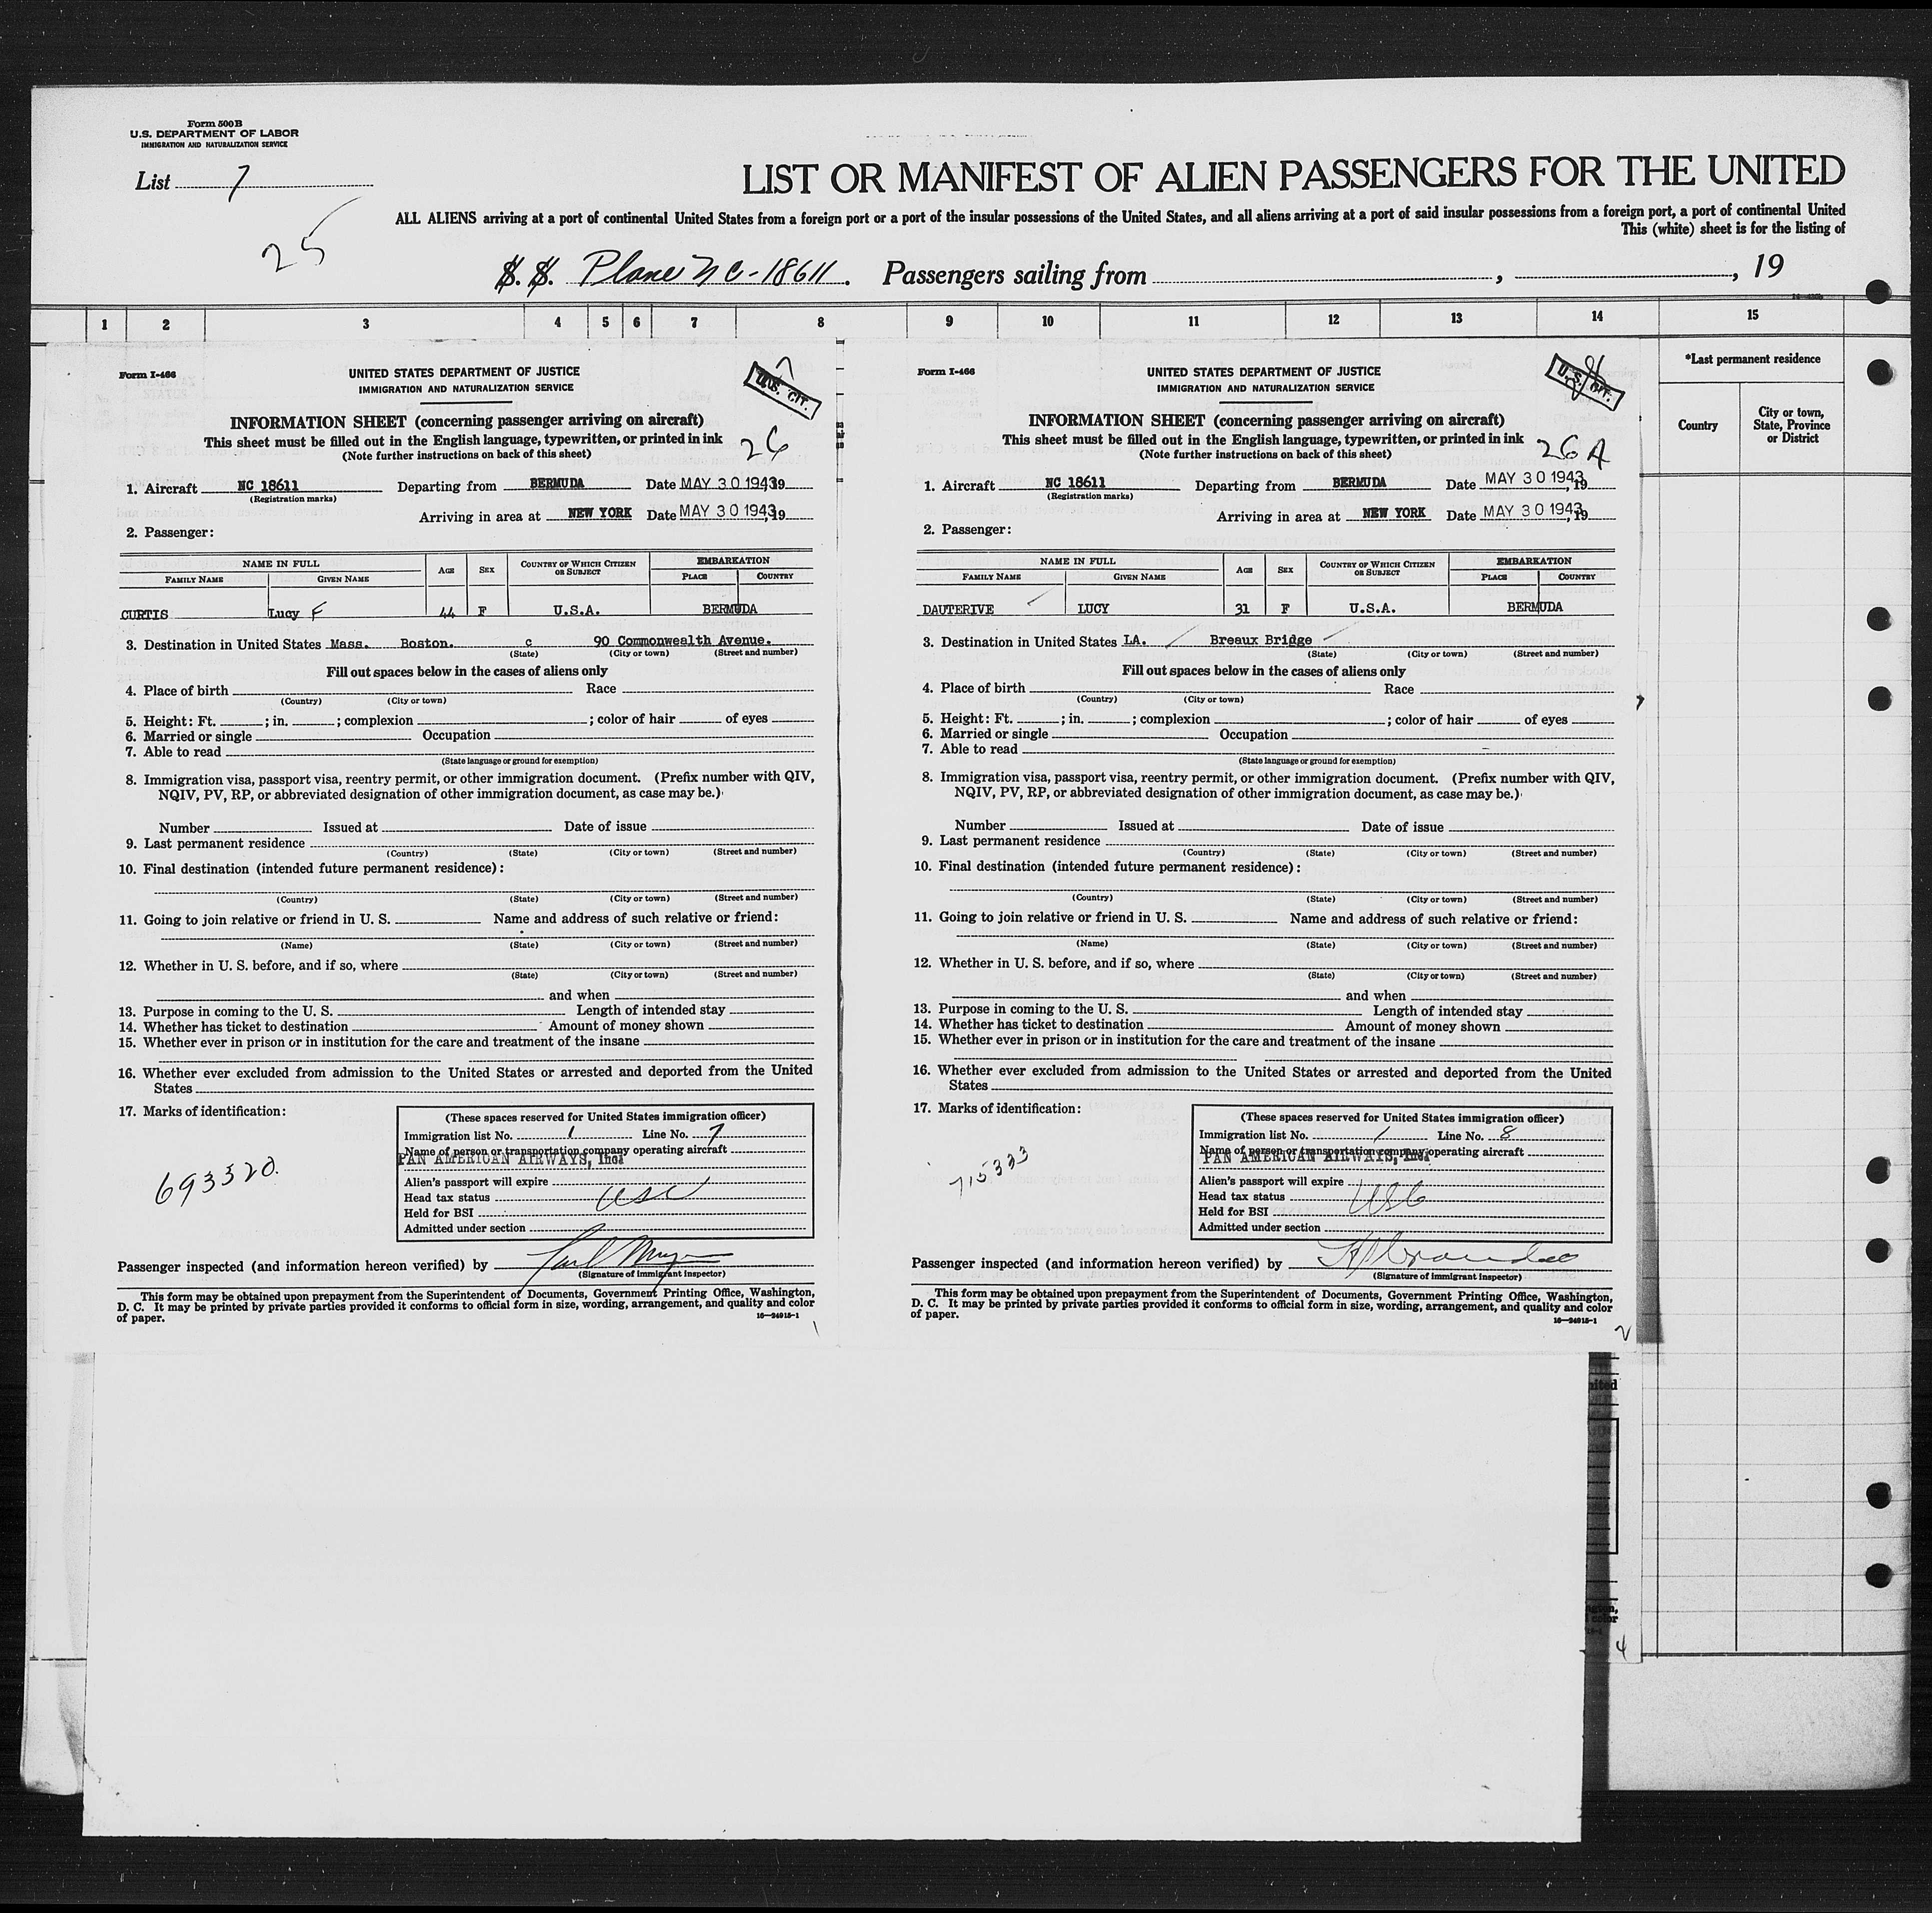 Form 500 B
U.S. DEPARTMENT OF LABOR
IMMIGRATION AND NATURALIZATION SERVICE
List 7
25
LIST OR MANIFEST OF ALIEN PASSENGERS FOR THE UNITED
ALL ALIENS arriving at a port of continental United States from a foreign port or a port of the insular possessions of the United States, and all aliens arriving at a port of said insular possessions from a foreign port, a port of continental United
This (white) sheet is for the listing of
S. S. Plane NC-18611. Passengers sailing from , , 19
1 2 3 4 5 6 7 8 9 10 11 12 13 14 15
*Last permanent residence
Country
City or town, State, Province or District
Form I-466
UNITED STATES DEPARTMENT OF JUSTICE
IMMIGRATION AND NATURALIZATION SERVICE
7
U.S. CIT.
INFORMATION SHEET (concerning passenger arriving on aircraft)
This sheet must be filled out in the English language, typewritten, or printed in ink
(Note further instructions on back of this sheet)
26
1. Aircraft NC 18611 Departing from BERMUDA Date MAY 30 1943, 19
(Registration marks)
Arriving in area at NEW YORK Date MAY 30 1943, 19
2. Passenger:
NAME IN FULL AGE SEX COUNTRY OF WHICH CITIZEN OR SUBJECT EMBARKATION
FAMILY NAME GIVEN NAME PLACE COUNTRY
CURTIS Lucy F 44 F U.S.A. BERMUDA
3. Destination in United States Mass. Boston. c 90 Commonwealth Avenue.
(State) (City or town) (Street and number)
Fill out spaces below in the cases of aliens only
4. Place of birth Race
(Country) (City or town)
5. Height: Ft. ; in. ; complexion ; color of hair of eyes
6. Married or single Occupation
7. Able to read
(State language or ground for exemption)
8. Immigration visa, passport visa, reentry permit, or other immigration document. (Prefix number with QIV,
NQIV, PV, RP, or abbreviated designation of other immigration document, as case may be.)
Number Issued at Date of issue
9. Last permanent residence
(Country) (State) (City or town) (Street and number)
10. Final destination (intended future permanent residence):
(Country) (State) (City or town) (Street and number)
11. Going to join relative or friend in U. S. Name and address of such relative or friend:
(Name) (State) (City or town) (Street and number)
12. Whether in U. S. before, and if so, where
(State) (City or town) (Street and number)
and when
13. Purpose in coming to the U. S. Length of intended stay
14. Whether has ticket to destination Amount of money shown
15. Whether ever in prison or in institution for the care and treatment of the insane
16. Whether ever excluded from admission to the United States or arrested and deported from the United
States
17. Marks of identification:
693320.
(These spaces reserved for United States immigration officer)
Immigration list No. 1 Line No. 7
Name of person or transportation company operating aircraft
PAN AMERICAN AIRWAYS, Inc.
Alien's passport will expire
Head tax status USC
Held for BSI
Admitted under section
Passenger inspected (and information hereon verified) by
(Signature of immigrant inspector)
This form may be obtained upon prepayment from the Superintendent of Documents, Government Printing Office, Washington,
D. C. It may be printed by private parties provided it conforms to official form in size, wording, arrangement, and quality and color
of paper.
16—24915-1
1
Form I-466
UNITED STATES DEPARTMENT OF JUSTICE
IMMIGRATION AND NATURALIZATION SERVICE
8
U.S. CIT.
INFORMATION SHEET (concerning passenger arriving on aircraft)
This sheet must be filled out in the English language, typewritten, or printed in ink
(Note further instructions on back of this sheet)
26 A
1. Aircraft NC 18611 Departing from BERMUDA Date MAY 30 1943, 19
(Registration marks)
Arriving in area at NEW YORK Date MAY 30 1943, 19
2. Passenger:
NAME IN FULL AGE SEX COUNTRY OF WHICH CITIZEN OR SUBJECT EMBARKATION
FAMILY NAME GIVEN NAME PLACE COUNTRY
DAUTERIVE LUCY 31 F U.S.A. BERMUDA
3. Destination in United States LA. Breaux Bridge
(State) (City or town) (Street and number)
Fill out spaces below in the cases of aliens only
4. Place of birth Race
(Country) (City or town)
5. Height: Ft. ; in. ; complexion ; color of hair of eyes
6. Married or single Occupation
7. Able to read
(State language or ground for exemption)
8. Immigration visa, passport visa, reentry permit, or other immigration document. (Prefix number with QIV,
NQIV, PV, RP, or abbreviated designation of other immigration document, as case may be.)
Number Issued at Date of issue
9. Last permanent residence
(Country) (State) (City or town) (Street and number)
10. Final destination (intended future permanent residence):
(Country) (State) (City or town) (Street and number)
11. Going to join relative or friend in U. S. Name and address of such relative or friend:
(Name) (State) (City or town) (Street and number)
12. Whether in U. S. before, and if so, where
(State) (City or town) (Street and number)
and when
13. Purpose in coming to the U. S. Length of intended stay
14. Whether has ticket to destination Amount of money shown
15. Whether ever in prison or in institution for the care and treatment of the insane
16. Whether ever excluded from admission to the United States or arrested and deported from the United
States
17. Marks of identification:
715333
(These spaces reserved for United States immigration officer)
Immigration list No. 1 Line No. 8
Name of person or transportation company operating aircraft
PAN AMERICAN AIRWAYS, Inc.
Alien's passport will expire
Head tax status USC
Held for BSI
Admitted under section
Passenger inspected (and information hereon verified) by
(Signature of immigrant inspector)
This form may be obtained upon prepayment from the Superintendent of Documents, Government Printing Office, Washington,
D. C. It may be printed by private parties provided it conforms to official form in size, wording, arrangement, and quality and color
of paper.
16—24915-1
2
4